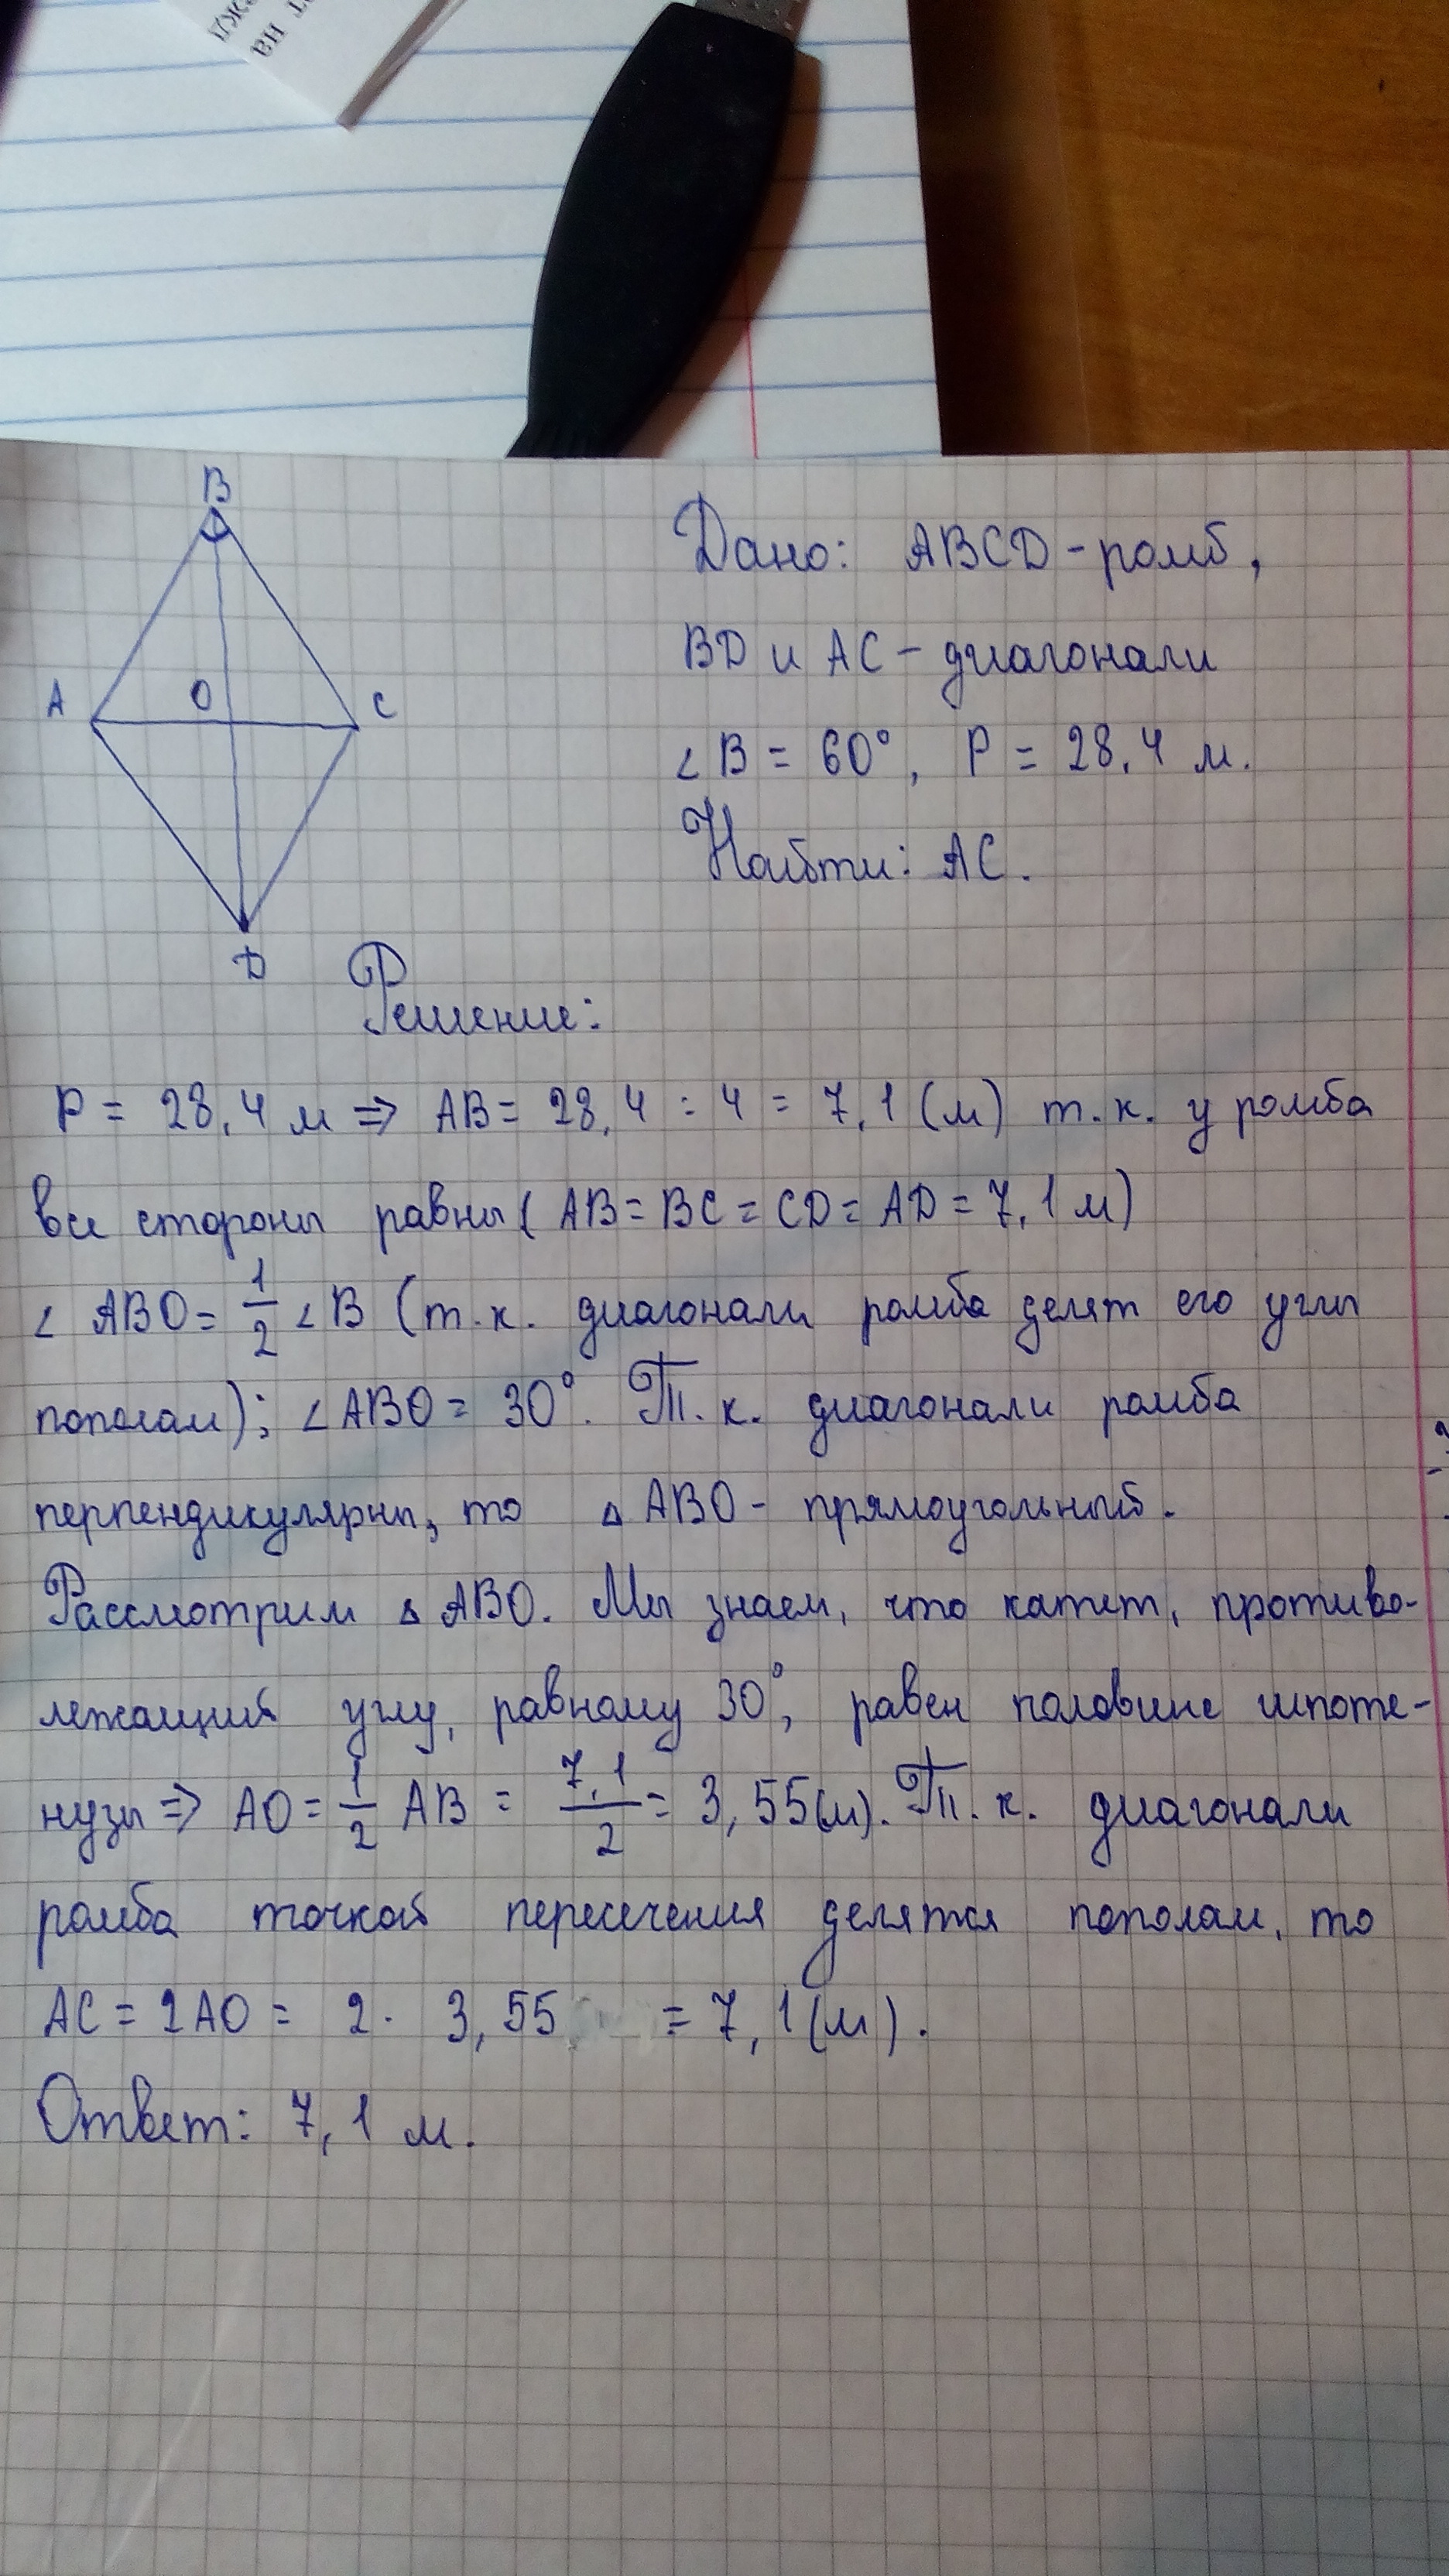 вн
B
Дано: ABCD - ромб,
BD и AC - диагонали
A O C
∠B = 60°, P = 28,4 м.
Найти: AC.
D
Решение:
P = 28,4 м ⇒ AB = 28,4 : 4 = 7,1 (м) т.к. у ромба
все стороны равны (AB = BC = CD = AD = 7,1 м)
∠ABO = 1/2 ∠B (т.к. диагонали ромба делят его углы
пополам); ∠ABO = 30°. Т.к. диагонали ромба
перпендикулярны, то △ABO - прямоугольный.
Рассмотрим △ABO. Мы знаем, что катет, противо-
лежащий углу, равному 30°, равен половине гипоте-
нузы ⇒ AO = 1/2 AB = 7,1/2 = 3,55(м). Т.к. диагонали
ромба точкой пересечения делятся пополам, то
AC = 2AO = 2 · 3,55 = 7,1(м).
Ответ: 7,1 м.